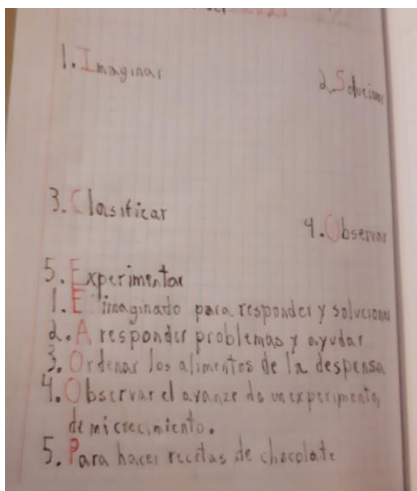 1. Imaginar
2. Solucionar
3. Clasificar
4. Observar
5. Experimentar
1. E imaginado para responder y solucionar
2. A responder problemas y ayudar
3. Ordenar los alimentos de la despensa
4. Observar el avanze de un experimento,
de mi crecimiento.
5. Para hacer recetas de chocolate